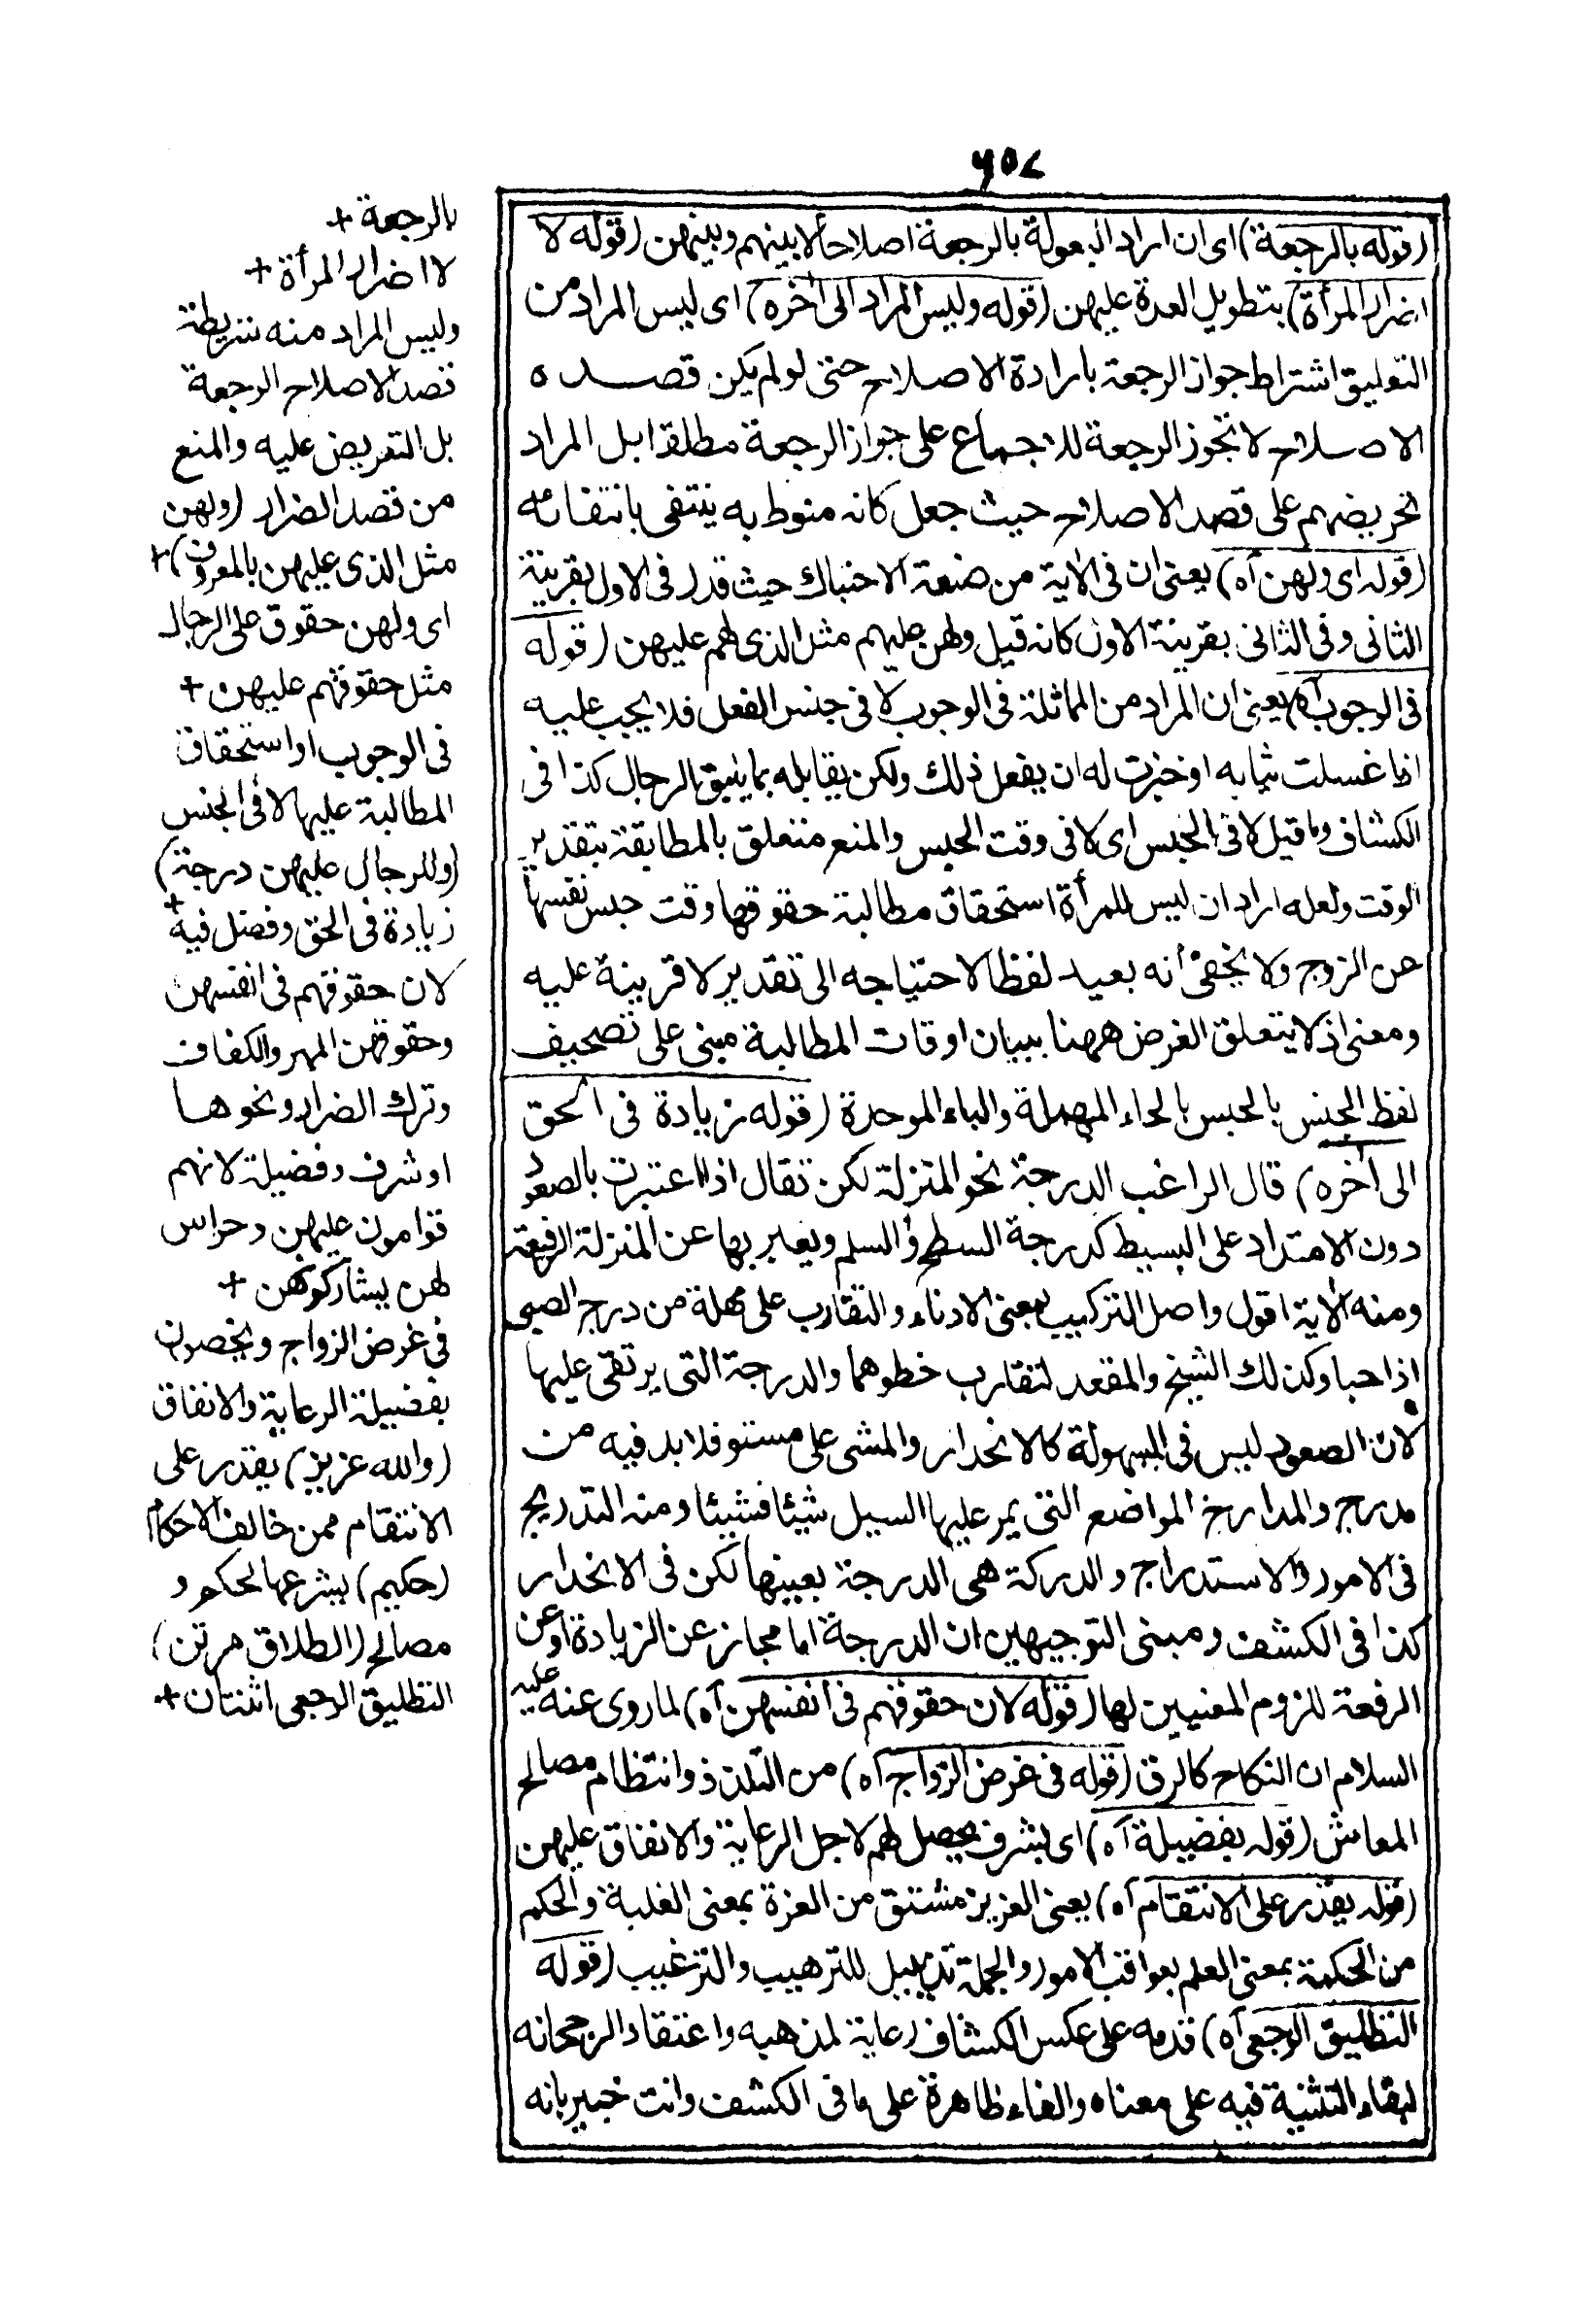 ٦٥٨
(قوله بالرجعة) اى ان اراد البعولة بالرجعة اصلاحا لا بينهم وبينهن (قوله لا
اضرار المرأة) بتطويل العدة عليهن (قوله وليس المراد الى اخره) اى ليس المراد من
التعليق اشتراط جواز الرجعة بارادة الاصلاح حتى لو لم يكن قصده
الاصلاح لا تجوز الرجعة للاجماع على جواز الرجعة مطلقا بل المراد
تحريضهم على قصد الاصلاح حيث جعل كانه منوط به ينتفى بانتفائه
(قوله اى ولهن آه) يعنى ان فى الاية من صنعة الاحتباك حيث قدر فى الاول بقرينة
الثانى وفى الثانى بقرينة الاول كانه قيل ولهن عليهم مثل الذى لهم عليهن (قوله
فى الوجوب آه) يعنى ان المراد من المماثلة فى الوجوب لا فى جنس الفعل فلا يجب عليه
اذا غسلت ثيابه او خبزت له ان يفعل ذلك ولكن يقابله بما يليق بالرجال كذا فى
الكشاف وما قيل لا فى الحبس اى لا فى وقت الحبس والمنع متعلق بالمطابقة بتقدير
الوقت ولعله اراد ان ليس للمرأة استحقاق مطالبة حقوقها وقت حبس نفسها
عن الزوج ولا يخفى أنه بعيد لفظا لاحتياجه الى تقدير لا قرينة عليه
ومعنى اذ لا يتعلق الغرض ههنا ببيان اوقات المطالبة مبنى على تصحيف
لفظ الجنس بالحبس بالحاء المهملة والباء الموحدة (قوله زيادة فى الحق
الى آخره) قال الراغب الدرجة نحو المنزلة لكن تقال اذا اعتبرت بالصعود
دون الامتداد على البسيط كدرجة السطح والسلم ويعبر بها عن المنزلة الرفيعة
ومنه الاية اقول واصل التركيب بمعنى الادناء والتقارب على مهلة من درج الصبى
اذا حبا وكذلك الشيخ والمقعد لتقارب خطوهما والدرجة التى يرتقى عليها
لان الصعود ليس فى السهولة كالانحدار والمشى على مستو فلا بد فيه من
مدرج والمدارج المواضع التى يمر عليها السيل شيئا فشيئا ومنه التدريج
فى الامور والاستدراج والدركة هى الدرجة بعينها لكن فى الانحدار
كذا فى الكشف ومبنى التوجيهين ان الدرجة اما مجاز عن الزيادة او عن
الرفعة للزوم المعنيين لها (قوله لان حقوقهم فى انفسهن آه) لما روى عنه عليه
السلام ان النكاح كالرق (قوله فى غرض الزواج آه) من التلذذ وانتظام مصالح
المعاش (قوله بفضيلة آه) اى بشرف يحصل لهم لاجل الرعاية والانفاق عليهن
(قوله يقدر على الانتقام آه) يعنى العزيز مشتق من العزة بمعنى الغلبة والحكم
من الحكمة بمعنى العلم بعواقب الامور والجملة تذييل للترهيب والترغيب (قوله
التطليق الرجعى آه) قدمه على عكس الكشاف رعاية لمذهبه واعتقاد الرجحانه
لبقاء التثنية فيه على معناه والفاء ظاهرة على ما فى الكشف وانت خبير بانه
بالرجعة +
لا اضرار المرأة +
وليس المراد منه شريطة
قصد الاصلاح الرجعة
بل التعريض عليه والمنع
من قصد الضرار (ولهن
مثل الذى عليهن بالمعروف) +
اى ولهن حقوق على الرجال
مثل حقوقهم عليهن +
فى الوجوب او استحقاق
المطالبة عليها لا فى الجنس
(وللرجال عليهن درجة)
زيادة فى الحق وفضل فيه +
لان حقوقهم فى انفسهن
وحقوقهن المهر والكفاف
وترك الضرار ونحوها
او شرف وفضيلة لانهم
قوامون عليهن وحراس
لهن يشاركونهن +
فى غرض الزواج ويخصون
بفضيلة الرعاية والانفاق
(والله عزيز) يقدر على
الانتقام ممن خالف الاحكام
(حكيم) يشرعها لحكم و
مصالح (الطلاق مرتن)
التطليق الرجعى اثنتان +